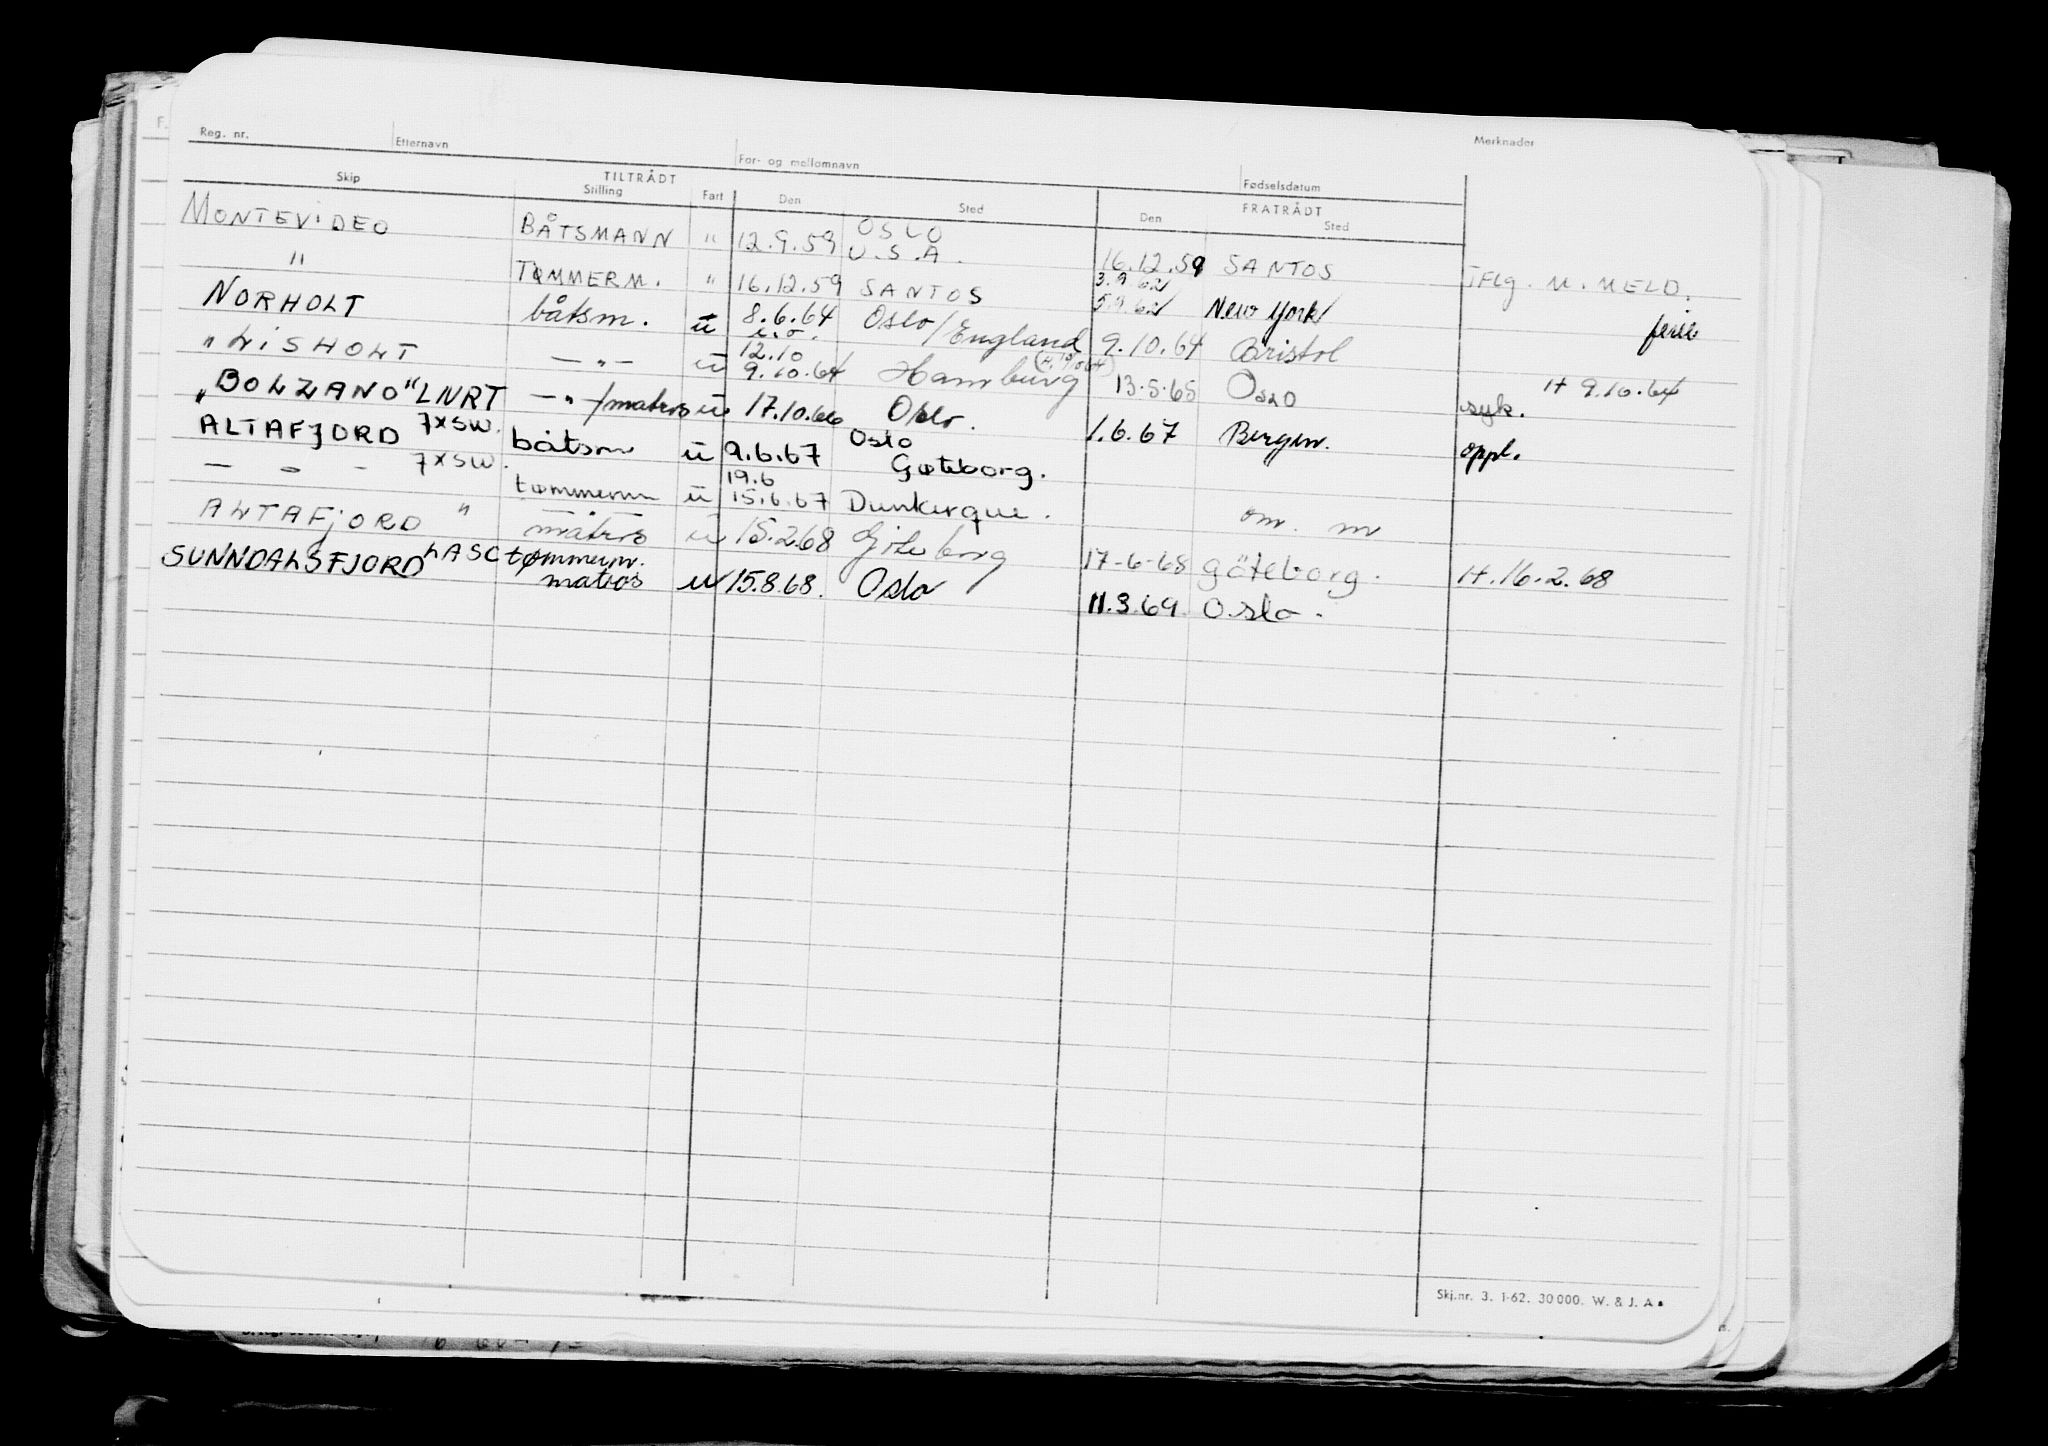 Reg. nr. Etternavn For- og mellomnavn Fødselsdatum Merknader
TILTRÅDT FRATRÅDT
Skip Stilling Fart Den Sted Den Sted
MONTEVIDEO BÅTSMANN " 12.9.59 OSLO U.S.A. 16.12.59 SANTOS
" TØMMERM. " 16.12.59 SANTOS 3.9.62 5.9.62 New York TFLG. M. MELD.
NORHOLT båtsm. u 8.6.64 Oslo/England 9.10.64 Bristol ferie
"LISHOLT —"— u 12.10 9.10.64 Hamburg 13.5.65 OSLO syk. H 9.10.64
"BOLZANO" LNRT —"—/matros u 17.10.66 Oslo. 1.6.67 Bergen. oppl.
ALTAFJORD 7XSW. båtsm u 9.6.67 Oslo Gøteborg.
— " — 7XSW. tømmerm u 19.6 15.6.67 Dunkerque. om. m
ALTAFJORD " matros u 15.2.68 Göteborg 17-6-68 Göteborg. H.16.2.68
SUNNDALSFJORD LASC tømmerm. matros u 15.8.68. Oslo 11.3.69. Oslo.
Skj.nr. 3. 1-62. 30 000. W. & J. A.